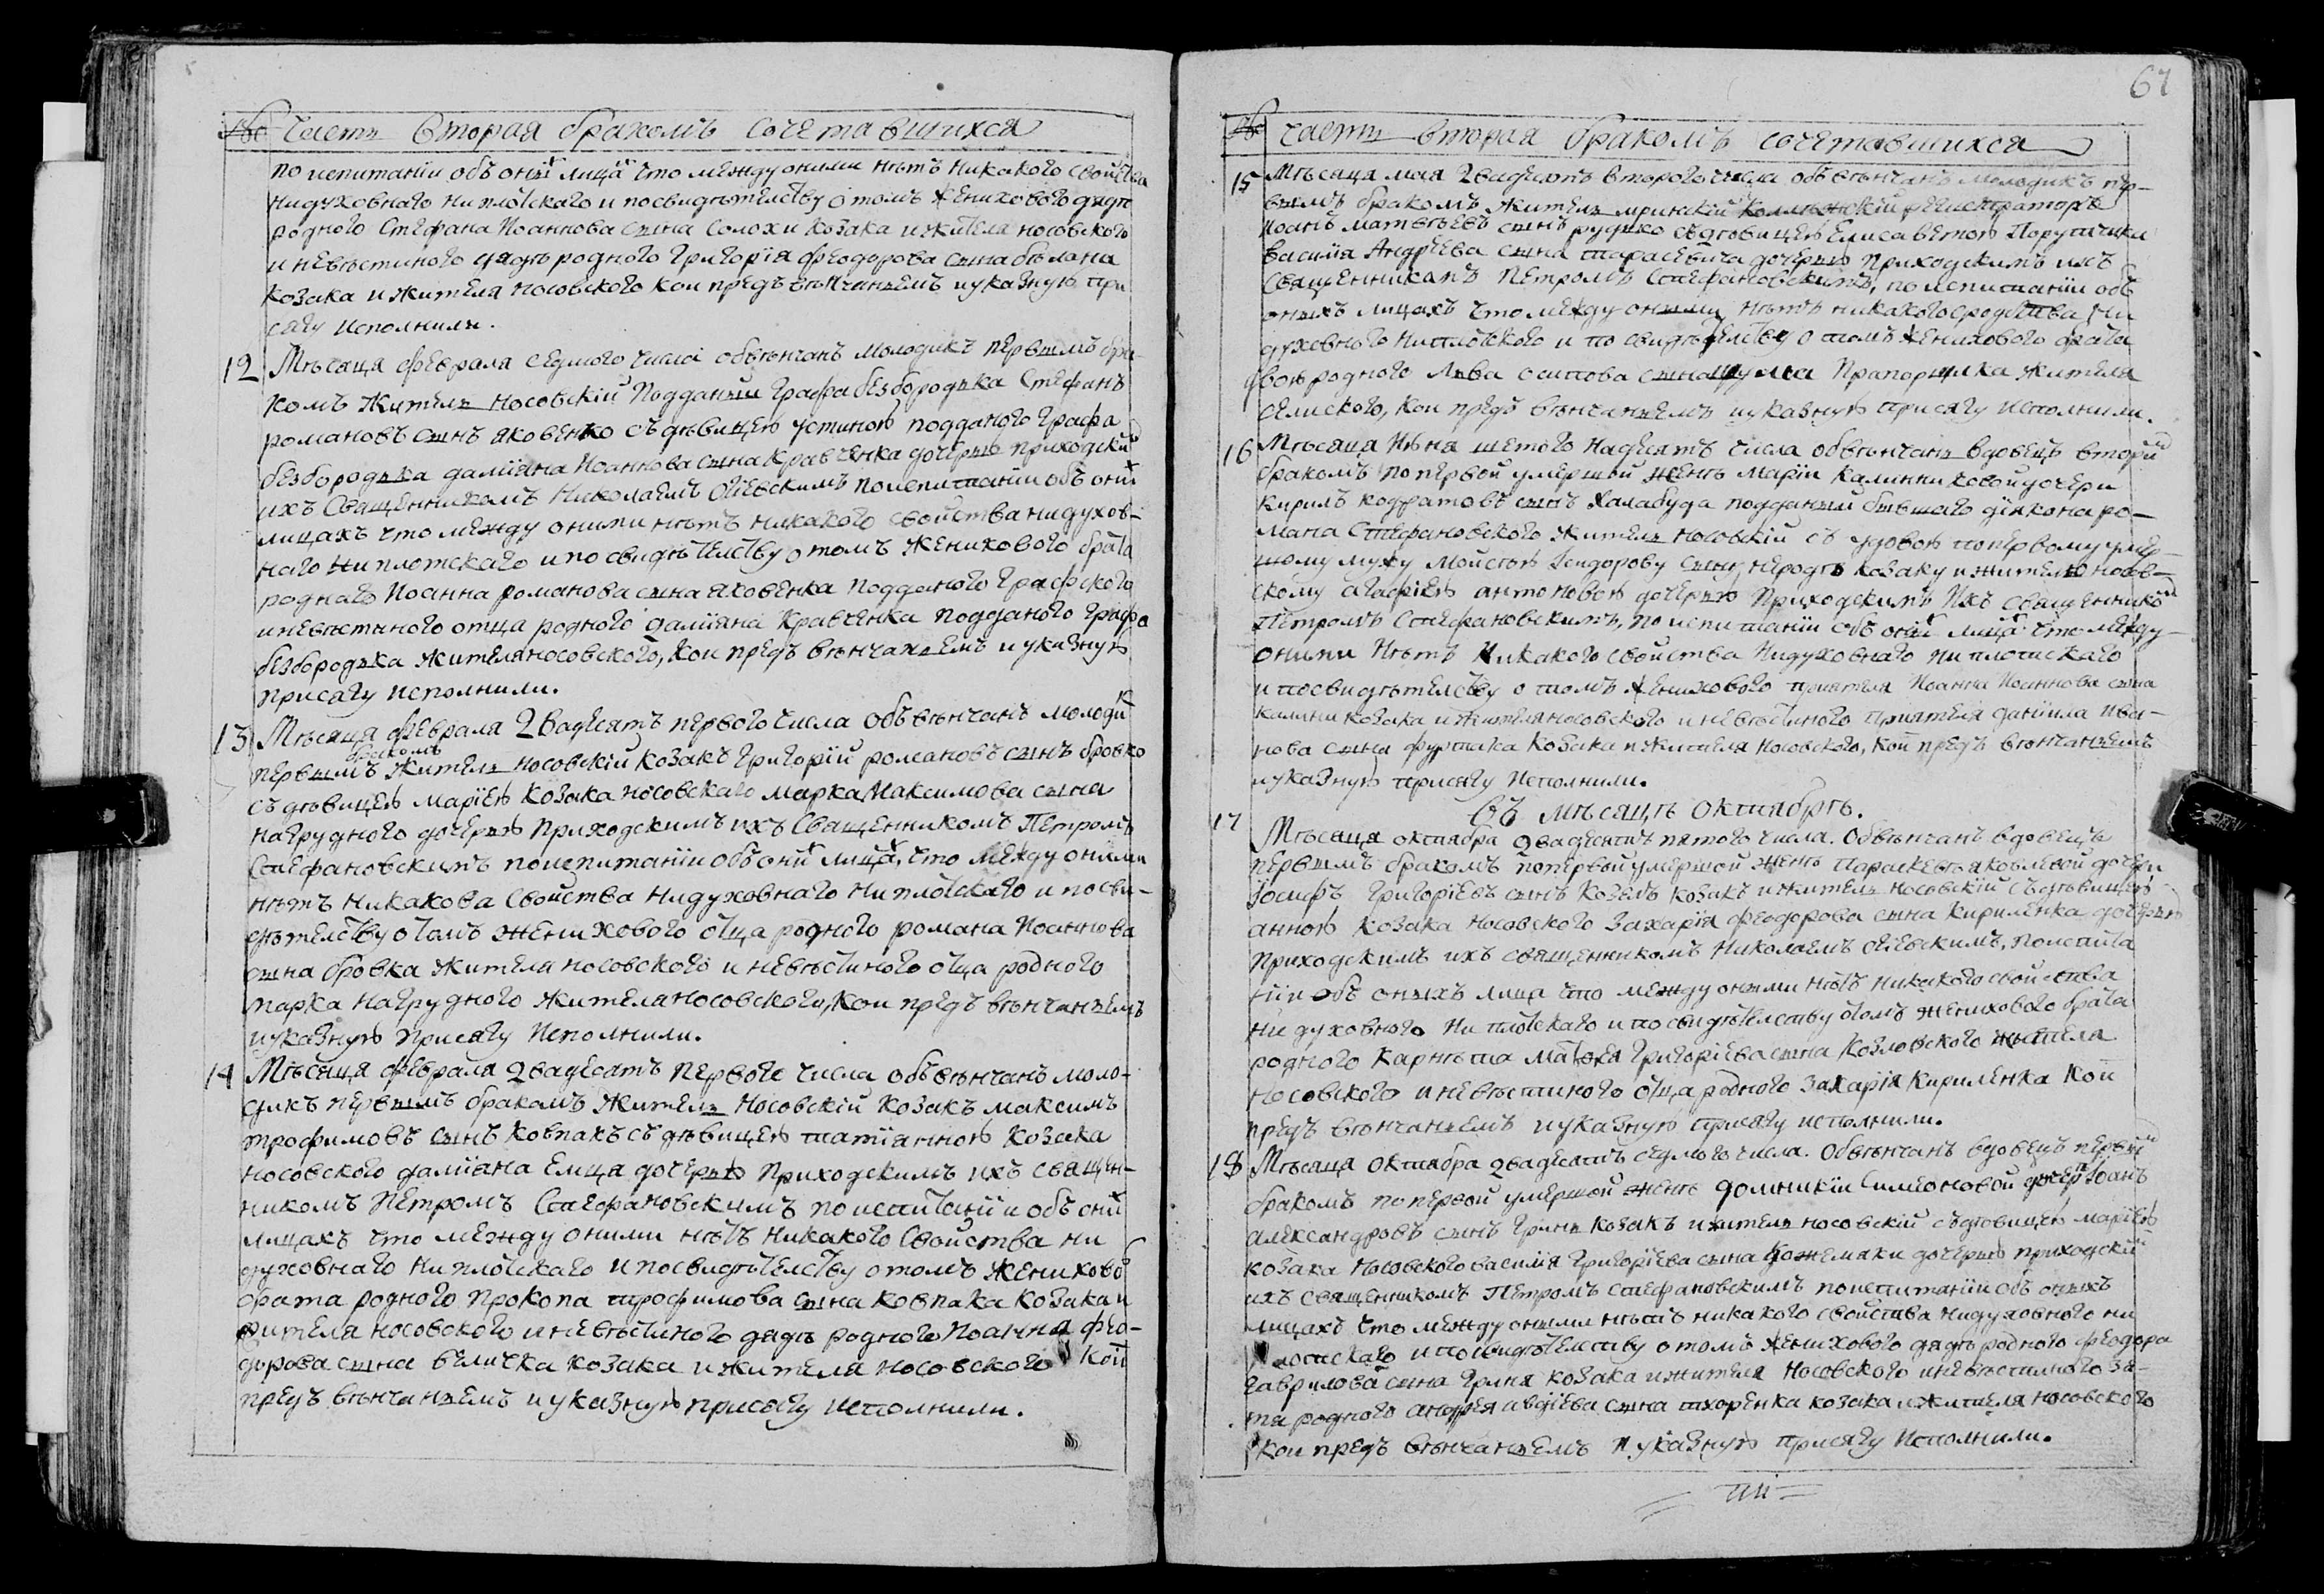 № Часть вторая бракомъ сочетавшихся
по испитаніи объ оныхъ лицахъ что между оними нѣтъ никакого свойства
ни духовнаго ни плотскаго и по свидѣтелству о томъ женихового дядѣ
родного Стефана Иоаннова сына Солохи козака и жителя носовского
и невѣстиного дядѣ родного Григорія Феодорова сына бѣлана
козака и жителя носовского кои предъ вѣнчаньемъ и указную при
сягу исполнили.
12 Мѣсяца февраля седмого числа обвѣнчанъ молодикъ первымъ бра-
комъ житель носовскій подданый графа безбородька Стефанъ
романовъ сынъ яковенко съ дѣвицею устиною подданого графа
безбородька даміяна Иоаннова сына Кравченка дочерью приходским
ихъ Священникомъ Николаемъ Олѣевскимъ по испитаніи объ оних
лицахъ что между оними нѣтъ никакого свойства ни духов-
наго ни плотскаго и по свидѣтелству о томъ женихового брата
родного Иоанна романова сына яковенка подданого графского
и невѣстиного отца родного даміяна Кравченка подданого графа
безбородька жителя носовского, кои предъ вѣнчаньемъ и указную
присягу исполнили.
13 Мѣсяца февраля двадесятъ первого числа обвѣнчанъ молодик
бракомъ
первымъ житель носовскій козакъ Григорій романовъ сынъ бровко
съ дѣвицею маріею козака носовскаго марка Максимова сына
нагрудного дочерью приходскимъ ихъ Священникомъ Петромъ
Стефановскимъ по испитаніи объ оних лицах, что между оними
нѣтъ никакова свойства ни духовнаго ни плотскаго и по сви-
дѣтелству о томъ женихового отца родного романа Иоаннова
сына бровка жителя носовского и невѣстиного отца родного
марка нагрудного жителя носовского, кои предъ вѣнчаньемъ
и указную присягу исполнили.
14 Мѣсяца февраля двадесятъ первого числа обвѣнчанъ моло-
дикъ первымъ бракомъ житель носовскій козакъ максимъ
трофимовъ сынъ ковпакъ съ дѣвицею татіянною козака
носовского даміана Емца дочерью приходскимъ ихъ священ-
никомъ Петромъ Стефановскимъ по испитаніи объ оних
лицахъ что между оними нѣтъ никакого свойства ни
духовнаго ни плотскаго и по свидѣтелству о томъ жениховог
брата родного прокопа трофимова сына ковпака козака и
жителя носовского и невѣстиного дядѣ родного Иоанна фео-
дорова сына величка козака и жителя носовского кои
предъ вѣнчаньемъ и указную присягу исполнили.
67
№ Часть вторая бракомъ сочетавшихся
15 Мѣсяца мая двадесятъ второго числа обвѣнчанъ молодикъ пер-
вымъ бракомъ житель мринскій колліежскій регистраторъ
Иоанъ матвѣевъ сынъ рудько съ дѣвицею Елисаветою Порутчика
василія Андрѣева сына тарасевича дочерью приходскимъ ихъ
Священникомъ Петромъ Стефановскимъ, по испитаніи объ
оныхъ лицахъ что между оными нѣтъ никакого сродства ни
духовного ни плотского и по свидѣтелству о томъ женихового брата
двоюродного Льва осипова сына Прапорщика жителя
селиского, кои предъ вѣнчаньемъ и указную присягу исполнили.
16 Мѣсяца Июня шетого надесять числа обвѣнчанъ вдовецъ вторим
бракомъ по первой умершой женѣ маріи Калинниковой дочери
Кирилъ кодратовъ сынъ Халабуда подданый бывшаго діякона ро-
мана Стефановского житель носовскій съ удовою по первому умер-
шому мужу Моисѣю Сидорову сыну неродѣ козаку и жителю носов-
скому агафіею антоновою дочерью Приходскимъ ихъ Священником
Петромъ Стефановскимъ, по испитаніи объ оных лицах что между
оними нѣтъ никакого свойства ни духовнаго ни плотскаго
и по свидѣтелству о томъ женихового приятеля Иоанна Иоаннова сына
калини козака и жителя носовского и невѣстиного приятеля даніила ива-
нова сына фурсака козака и жителя носовского, кои предъ вѣнчаньемъ
и указную присягу исполнили.
Въ мѣсяцѣ октябрѣ.
17 Мѣсяца октября двадесятъ пятого числа. Обвѣнчанъ вдовецъ
первымъ бракомъ по первой умершой женѣ параскевѣ яковлевой дочери
Иосифъ Григоріевъ сынъ Козелъ козакъ и житель носовскій съ дѣвицею
анною козака носовского Захарія феодорова сына Кириленка дочерью
приходскимъ ихъ священникомъ Николаемъ Олѣевскимъ, по испита
ніи объ оныхъ лица что между оными нѣтъ никакого свойства
ни духовного ни плотского и по свидѣтелству о томъ женихового брата
родного Григоріева сына Козловского жителя
носовского и невѣстиного отца родного захарія Кириленка кои
предъ вѣнчаньемъ и указную присягу исполнили.
18 Мѣсяца октября двадесятъ седмого числа. Обвѣнчанъ вдовецъ первим
бракомъ по первой умершой женѣ домникіи Симеоновой дочери Иоанъ
александровъ сынъ Гринь козакъ и житель носовскій съ дѣвицею маріею
козака носовского василія Григоріева сына Кожемяки дочерью приходским
ихъ священникомъ Петромъ Стефановскимъ по испитаніи объ оныхъ
лицахъ что между оными нѣтъ никакого свойства ни духовного ни
плотскаго и по свидѣтелству о томъ женихового дядѣ родного феодора
Гаврилова сына Гриня козака и жителя носовского и невѣстиного зя-
тя родного андрея авдіева сына тхоренка козака и жителя носовского
кои предъ вѣнчаньемъ и указную присягу исполнили.